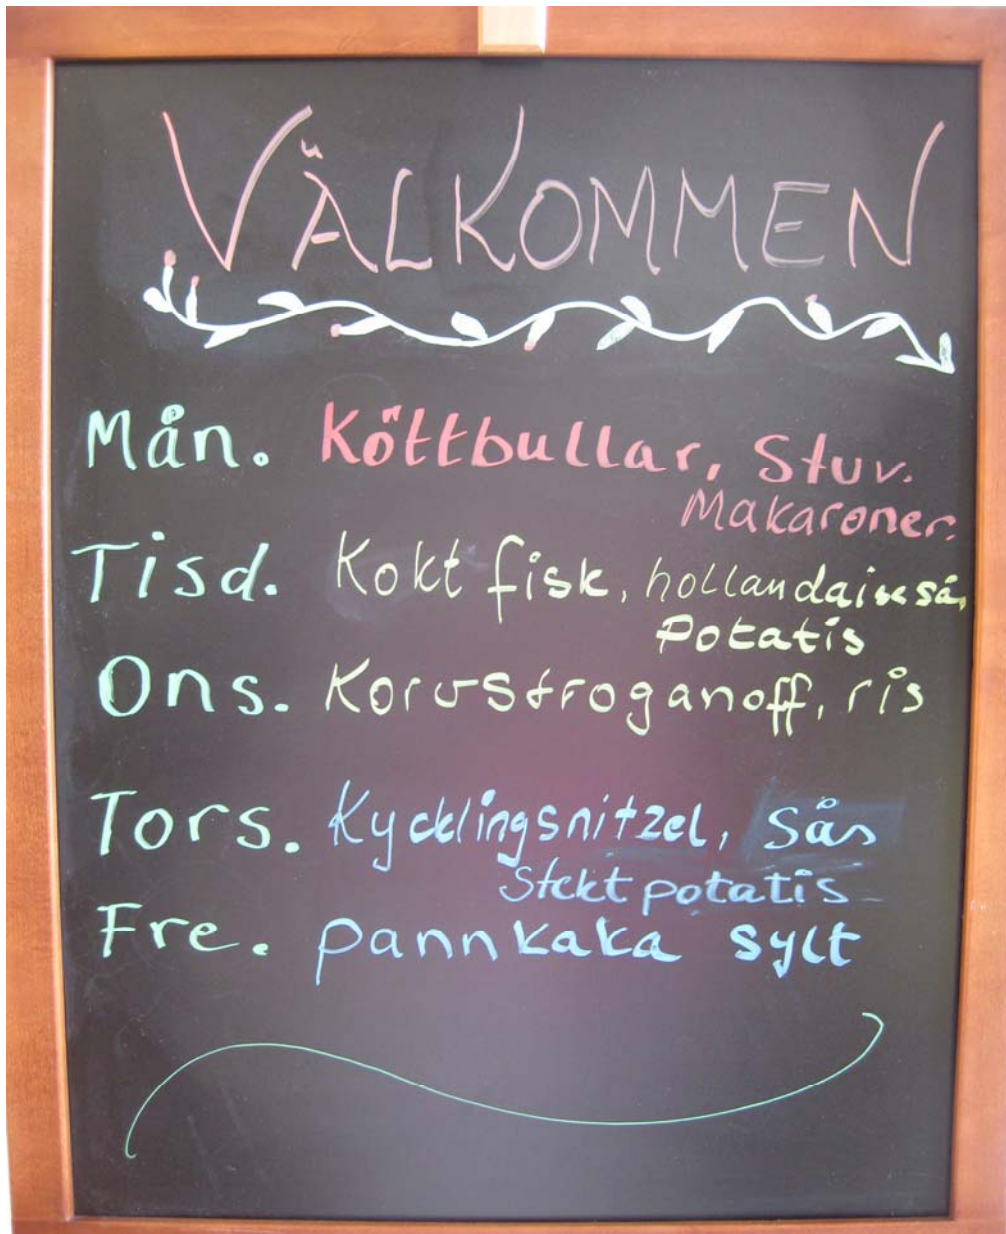 VÄLKOMMEN
Mån. Köttbullar, Stuv.
Makaroner.
Tisd. Kokt fisk, hollandaisesås,
Potatis
Ons. Korvstroganoff, ris
Tors. Kycklingsnitzel, sås
Stekt potatis
Fre. pannkaka sylt